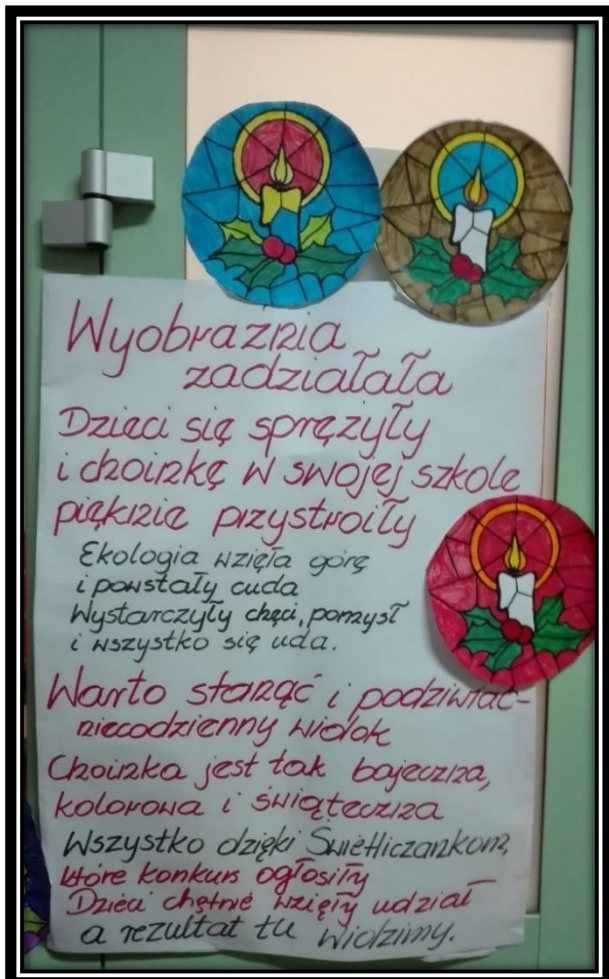 Wyobraznia
zadziałała
Dzieci się sprężyły
i choinkę w swojej szkole
pięknie przystroiły
Ekologia wzięła górę
i powstały cuda
Wystarczyły chęci, pomysł
i wszystko się uda.
Warto stanąć i podziwiać-
niecodzienny widok
Choinka jest tak bajeczna,
kolorowa i świąteczna
Wszystko dzięki Świetliczankom,
które konkurs ogłosiły
Dzieci chętnie wzięły udział
a rezultat tu widzimy.